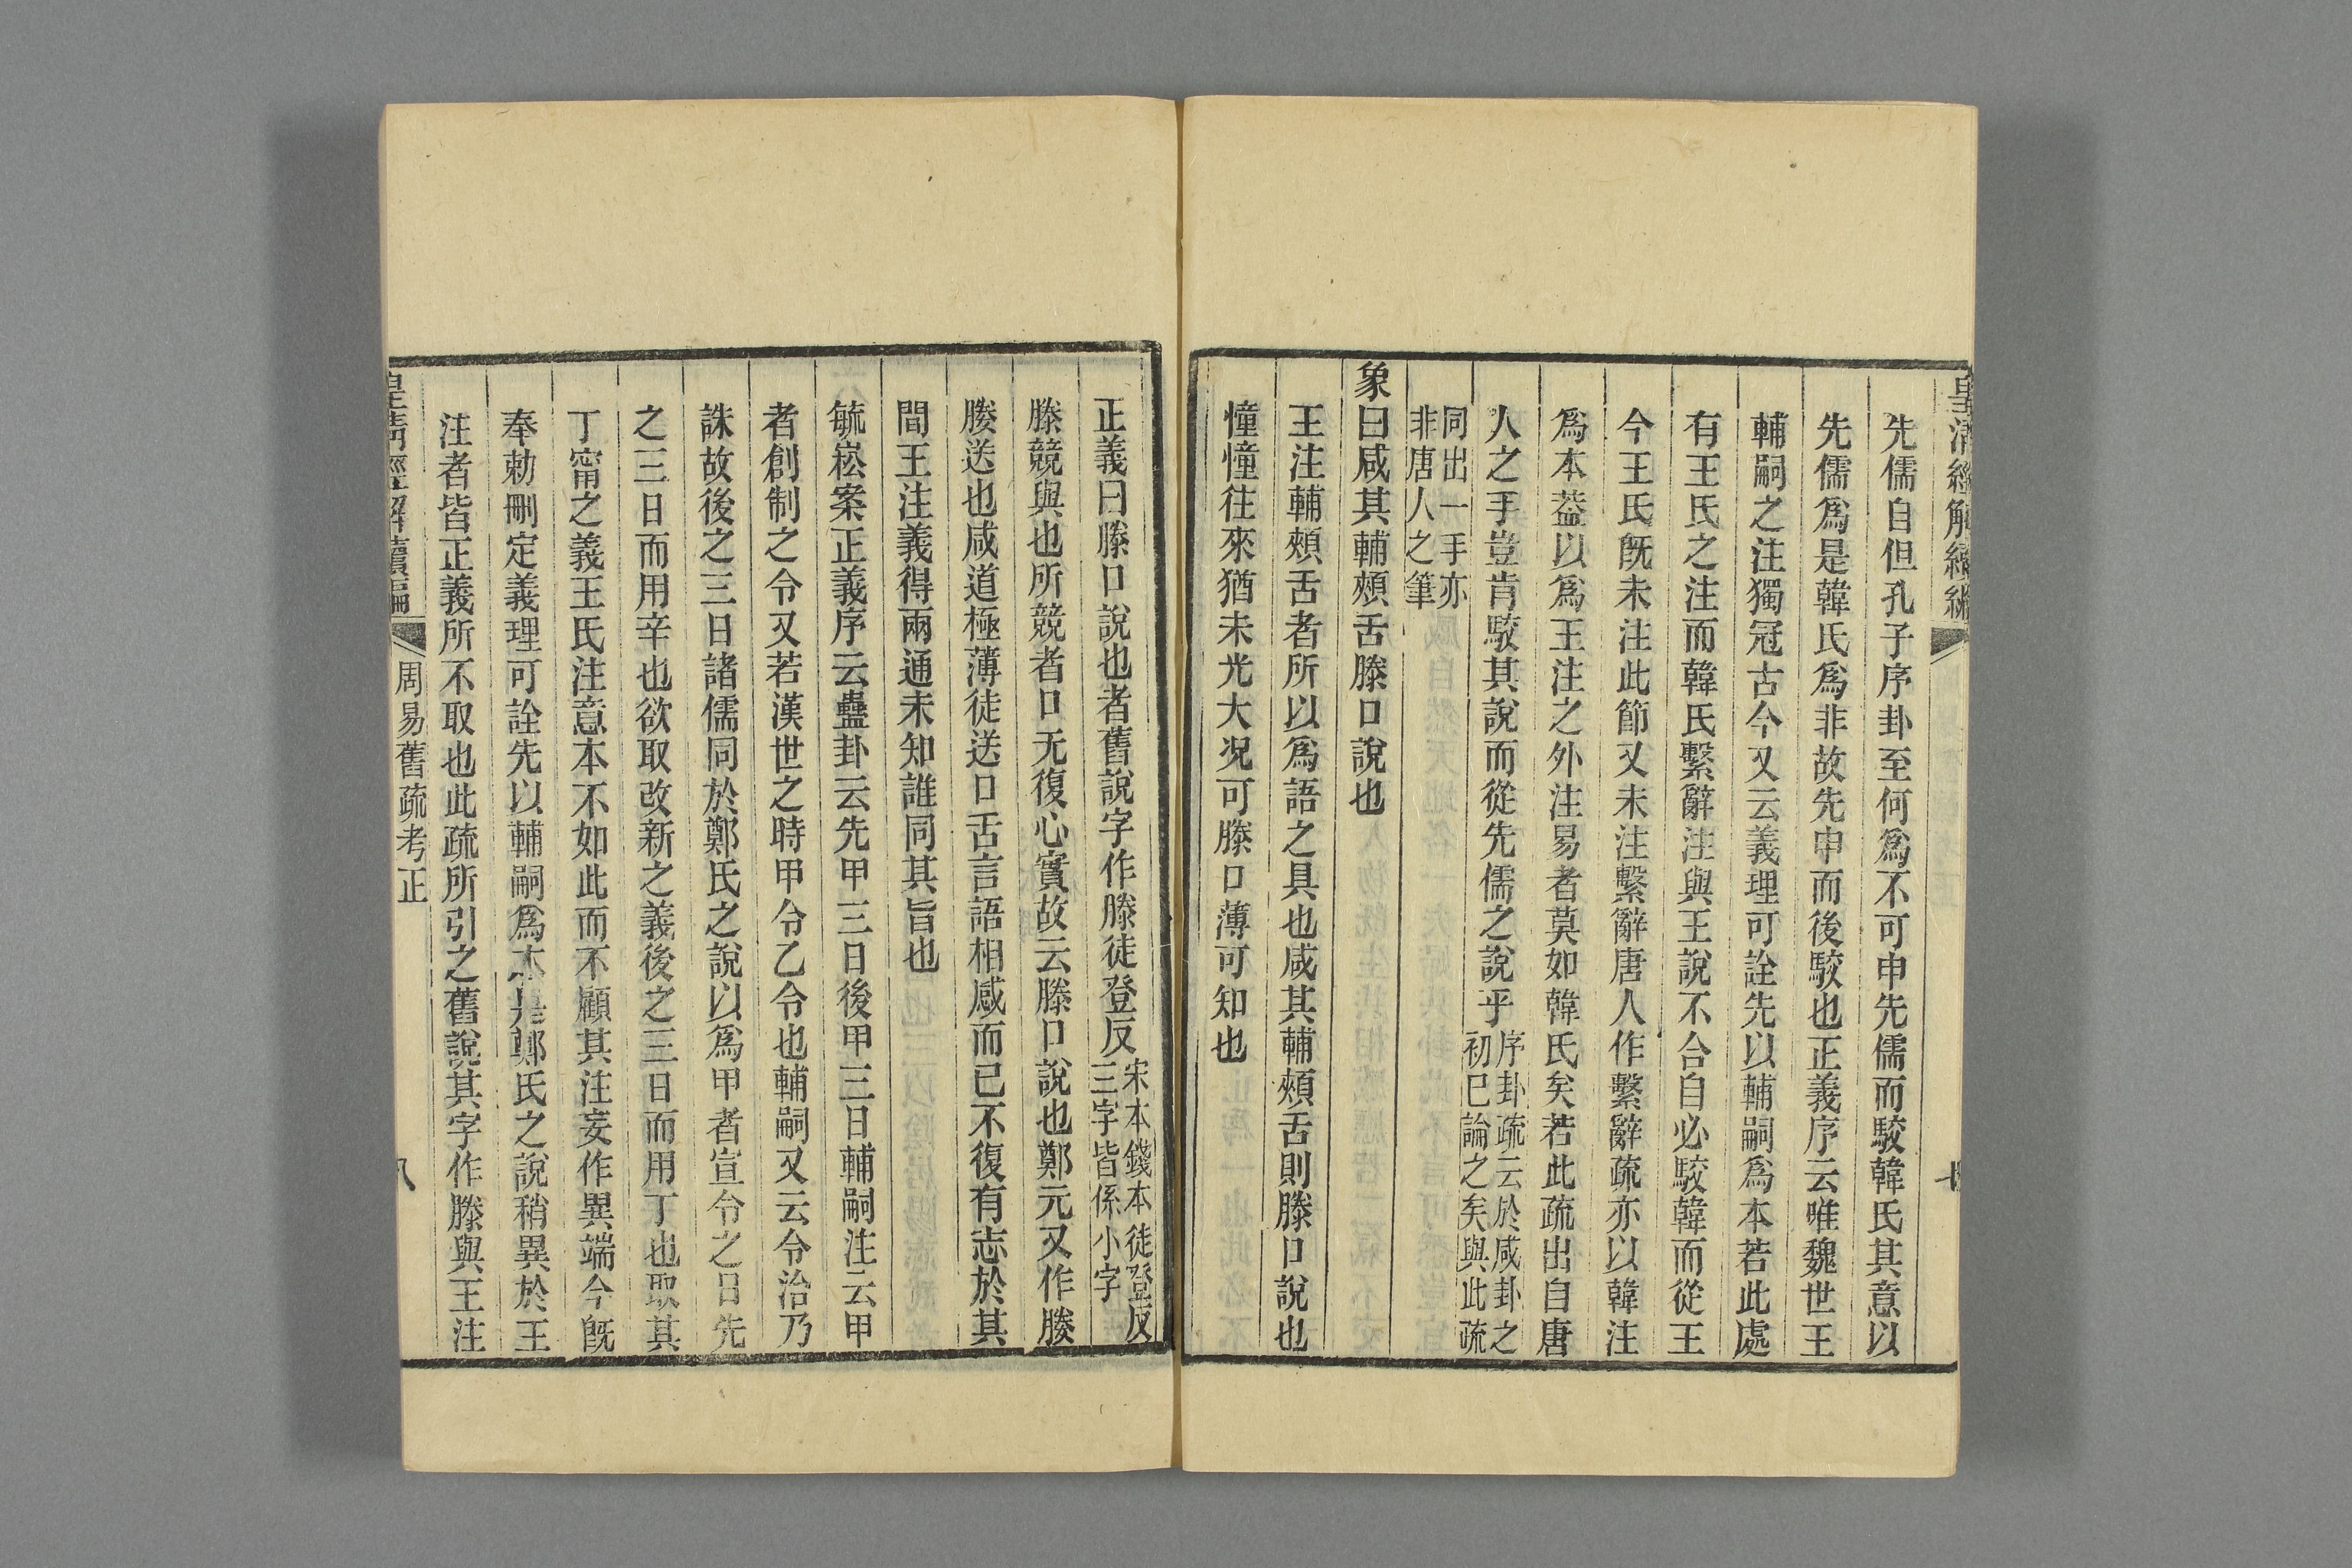 皇清經解續編
七
先儒自但孔子序卦至何爲不可申先儒而駮韓氏其意以
先儒爲是韓氏爲非故先申而後駮也正義序云唯魏世王
輔嗣之注獨冠古今又云義理可詮先以輔嗣爲本若此處
有王氏之注而韓氏繫辭注與王說不合自必駮韓而從王
今王氏旣未注此節又未注繫辭唐人作繫辭疏亦以韓注
爲本葢以爲王注之外注易者莫如韓氏矣若此疏出自唐
人之手豈肯駮其說而從先儒之說乎
序卦疏云於咸卦之
初已論之矣與此疏
同出一手亦
非唐人之筆
象曰咸其輔頰舌滕口說也
王注輔頰舌者所以爲語之具也咸其輔頰舌則滕口說也
憧憧往來猶未光大況可滕口薄可知也
正義曰滕口說也者舊說字作滕徒登反
宋本錢本徒登反
三字皆係小字
滕競與也所競者口无復心實故云滕口說也鄭元又作媵
媵送也咸道極薄徒送口舌言語相感而已不復有志於其
間王注義得兩通未知誰同其旨也
毓崧案正義序云蠱卦云先甲三日後甲三日輔嗣注云甲
者創制之令又若漢世之時甲令乙令也輔嗣又云令洽乃
誅故後之三日諸儒同於鄭氏之說以爲甲者宣令之日先
之三日而用辛也欲取改新之義後之三日而用丁也取其
丁甯之義王氏注意本不如此而不顧其注妄作異端今旣
奉勅刪定義理可詮先以輔嗣爲本是鄭氏之說稍異於王
注者皆正義所不取也此疏所引之舊說其字作滕與王注
皇清經解續編
周易舊疏考正
八